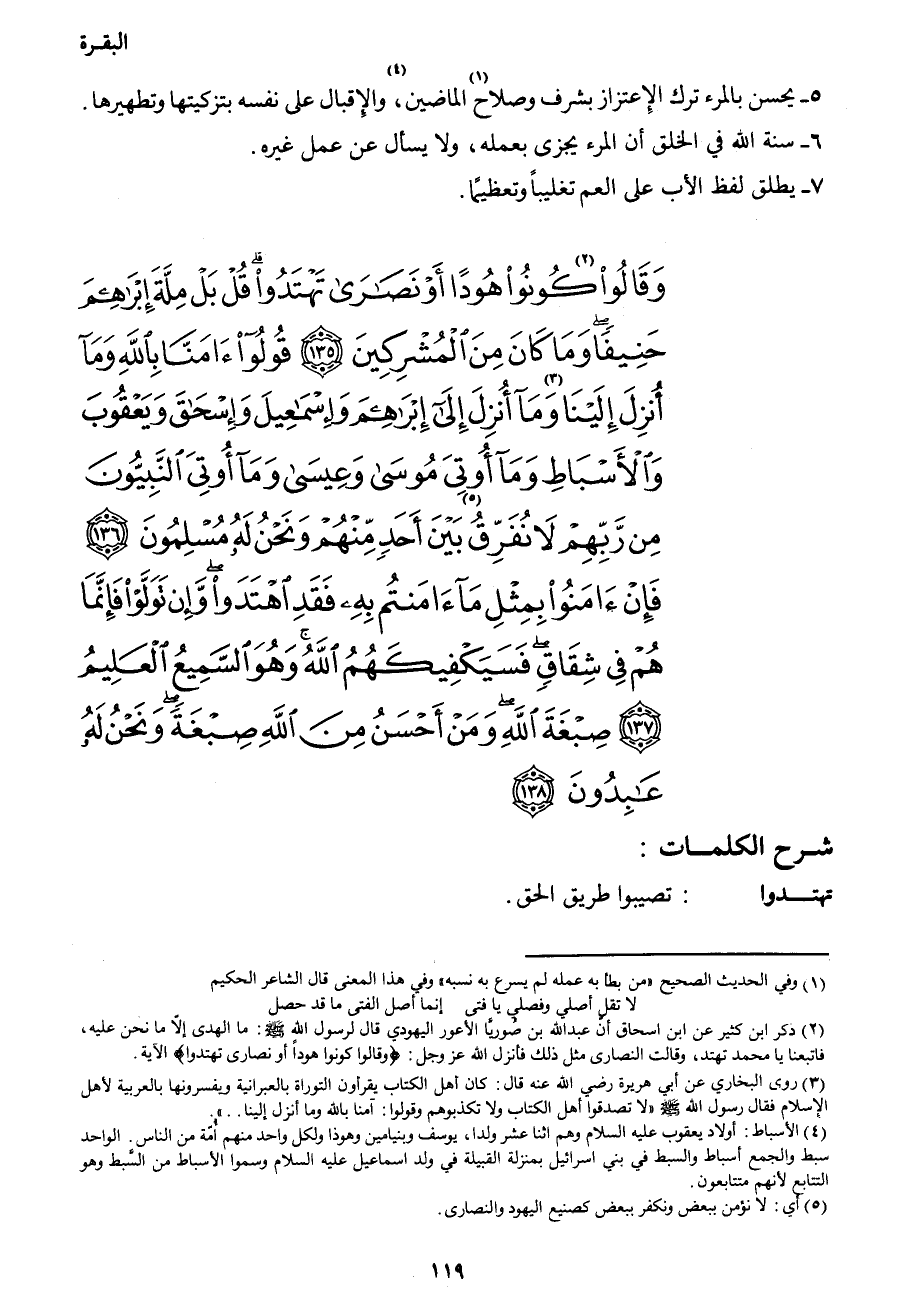 البقرة
٥ـ يحسن بالمرء ترك الإعتزاز بشرف وصلاح (١) الماضين، (٤) والإقبال على نفسه بتزكيتها وتطهيرها.
٦ـ سنة الله في الخلق أن المرء يجزى بعمله، ولا يسأل عن عمل غيره.
٧ـ يطلق لفظ الأب على العم تغليباً وتعظيمًا.
وَقَالُوا۟ (٢) كُونُوا۟ هُودًا أَوْ نَصَـٰرَىٰ تَهْتَدُوا۟ ۗ قُلْ بَلْ مِلَّةَ إِبْرَٰهِـۧمَ
حَنِيفًا ۖ وَمَا كَانَ مِنَ ٱلْمُشْرِكِينَ ١٣٥ قُولُوٓا۟ ءَامَنَّا بِٱللَّهِ وَمَآ
أُنزِلَ إِلَيْنَا (٣) وَمَآ أُنزِلَ إِلَىٰٓ إِبْرَٰهِـۧمَ وَإِسْمَـٰعِيلَ وَإِسْحَـٰقَ وَيَعْقُوبَ
وَٱلْأَسْبَاطِ وَمَآ أُوتِىَ مُوسَىٰ وَعِيسَىٰ وَمَآ أُوتِىَ ٱلنَّبِيُّونَ
مِن رَّبِّهِمْ لَا نُفَرِّقُ (٥) بَيْنَ أَحَدٍ مِّنْهُمْ وَنَحْنُ لَهُۥ مُسْلِمُونَ ١٣٦
فَإِنْ ءَامَنُوا۟ بِمِثْلِ مَآ ءَامَنتُم بِهِۦ فَقَدِ ٱهْتَدَوا۟ ۖ وَّإِن تَوَلَّوْا۟ فَإِنَّمَا
هُمْ فِى شِقَاقٍ ۖ فَسَيَكْفِيكَهُمُ ٱللَّهُ ۚ وَهُوَ ٱلسَّمِيعُ ٱلْعَلِيمُ
١٣٧ صِبْغَةَ ٱللَّهِ ۖ وَمَنْ أَحْسَنُ مِنَ ٱللَّهِ صِبْغَةً ۖ وَنَحْنُ لَهُۥ
عَـٰبِدُونَ ١٣٨
شـرح الكلمـات :
تهتـــدوا : تصيبوا طريق الحق.
(١) وفي الحديث الصحيح «من بطأ به عمله لم يسرع به نسبه» وفي هذا المعنى قال الشاعر الحكيم
لا تقل أصلي وفصلي يا فتى إنما أصل الفتى ما قد حصل
(٢) ذكر ابن كثير عن ابن اسحاق أنّ عبدالله بن صُوريًا الأعور اليهودي قال لرسول الله ﷺ: ما الهدى إلّا ما نحن عليه،
فاتبعنا يا محمد تهتد، وقالت النصارى مثل ذلك فأنزل الله عز وجل: ﴿وقالوا كونوا هوداً أو نصارى تهتدوا﴾ الآية.
(٣) روى البخاري عن أبي هريرة رضي الله عنه قال: كان أهل الكتاب يقرأون التوراة بالعبرانية ويفسرونها بالعربية لأهل
الإسلام فقال رسول الله ﷺ «لا تصدقوا أهل الكتاب ولا تكذبوهم وقولوا: آمنا بالله وما أنزل إلينا. . .».
(٤) الأسباط: أولاد يعقوب عليه السلام وهم اثنا عشر ولدا، يوسف وبنيامين وهوذا ولكل واحد منهم أُمّة من الناس. الواحد
سبط والجمع أسباط والسبط في بني اسرائيل بمنزلة القبيلة في ولد اسماعيل عليه السلام وسموا الأسباط من السَّبط وهو
التتابع لأنهم متتابعون.
(٥) أي: لا نؤمن ببعض ونكفر ببعض كصنيع اليهود والنصارى.
١١٩